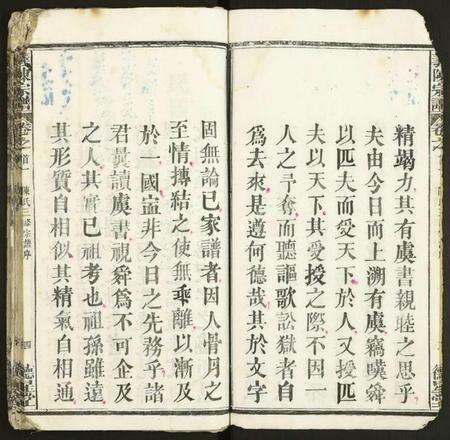 精竭力其有虞書親睦之思乎
夫由今日而上溯有虞竊嘆舜
以匹夫而受天下於人又授匹
夫以天下其受授之際不因一
人之予奪而聽謳歌訟獄者自
爲去來是遵何德哉其於文字
固無論已家譜者因人骨月之
至情摶結之使無乖離以漸及
於一國寍非今日之先務乎諸
君彙讀虞書視舜爲不可企及
之人其實已祖考也祖孫雖遠
其形質自相似其精氣自相通
陳宗譜
卷之首
陳氏三修宗譜序
四